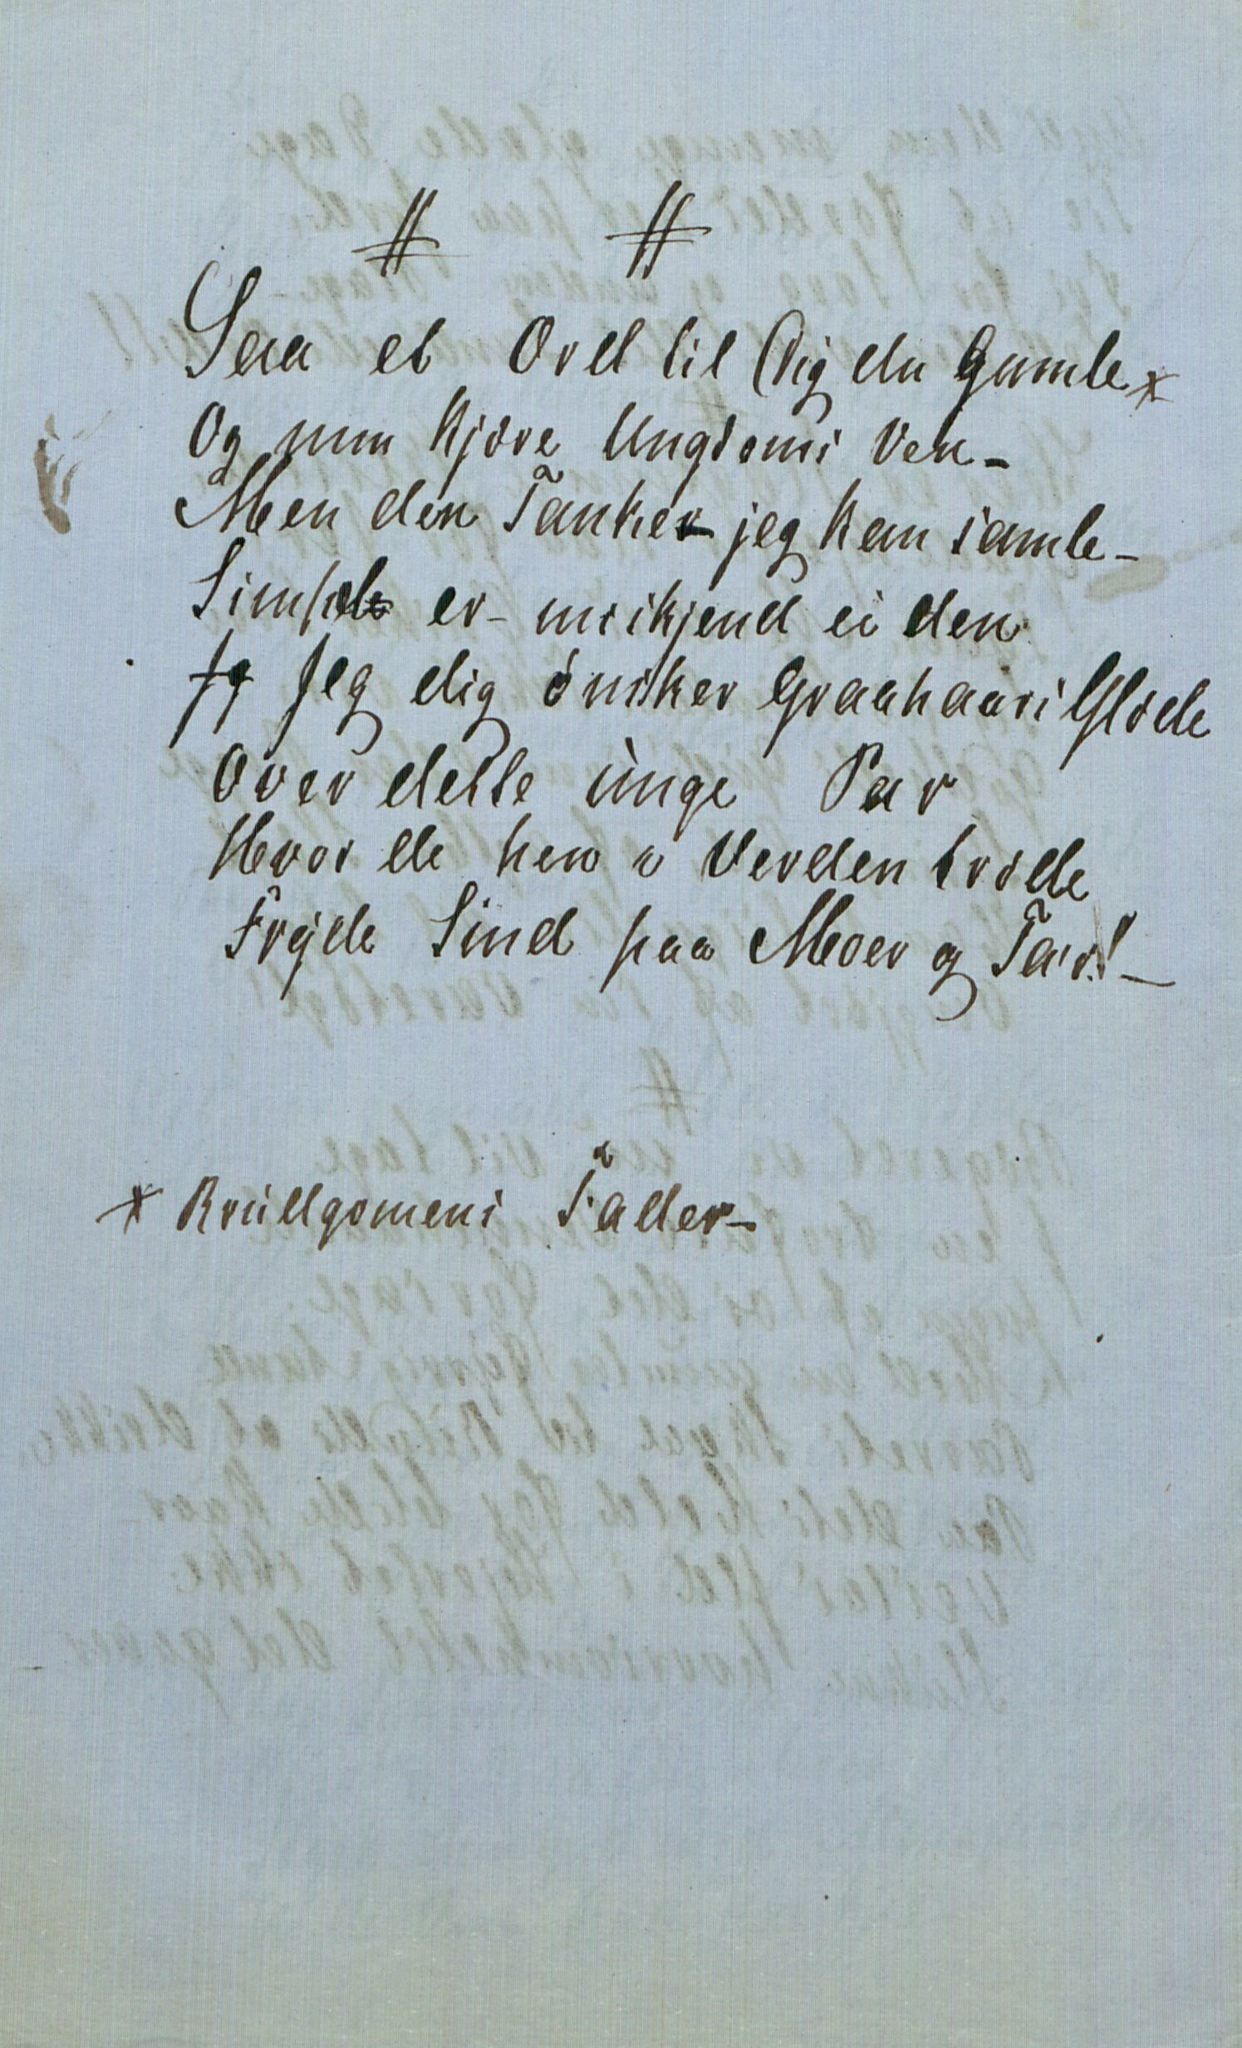 # #
Saa et Ord til Dig du Gamle *
Og min kjære Ungdoms Ven -
Men den Tanker jeg kan samle -
Simpel er - miskjend ei den
Jeg dig önsker Graahaars Glæde
Over dette unge Par
Hvor de hen i Verden træde
Fryde Sind paa Moer og Far! -
* Brudgomens Fader -